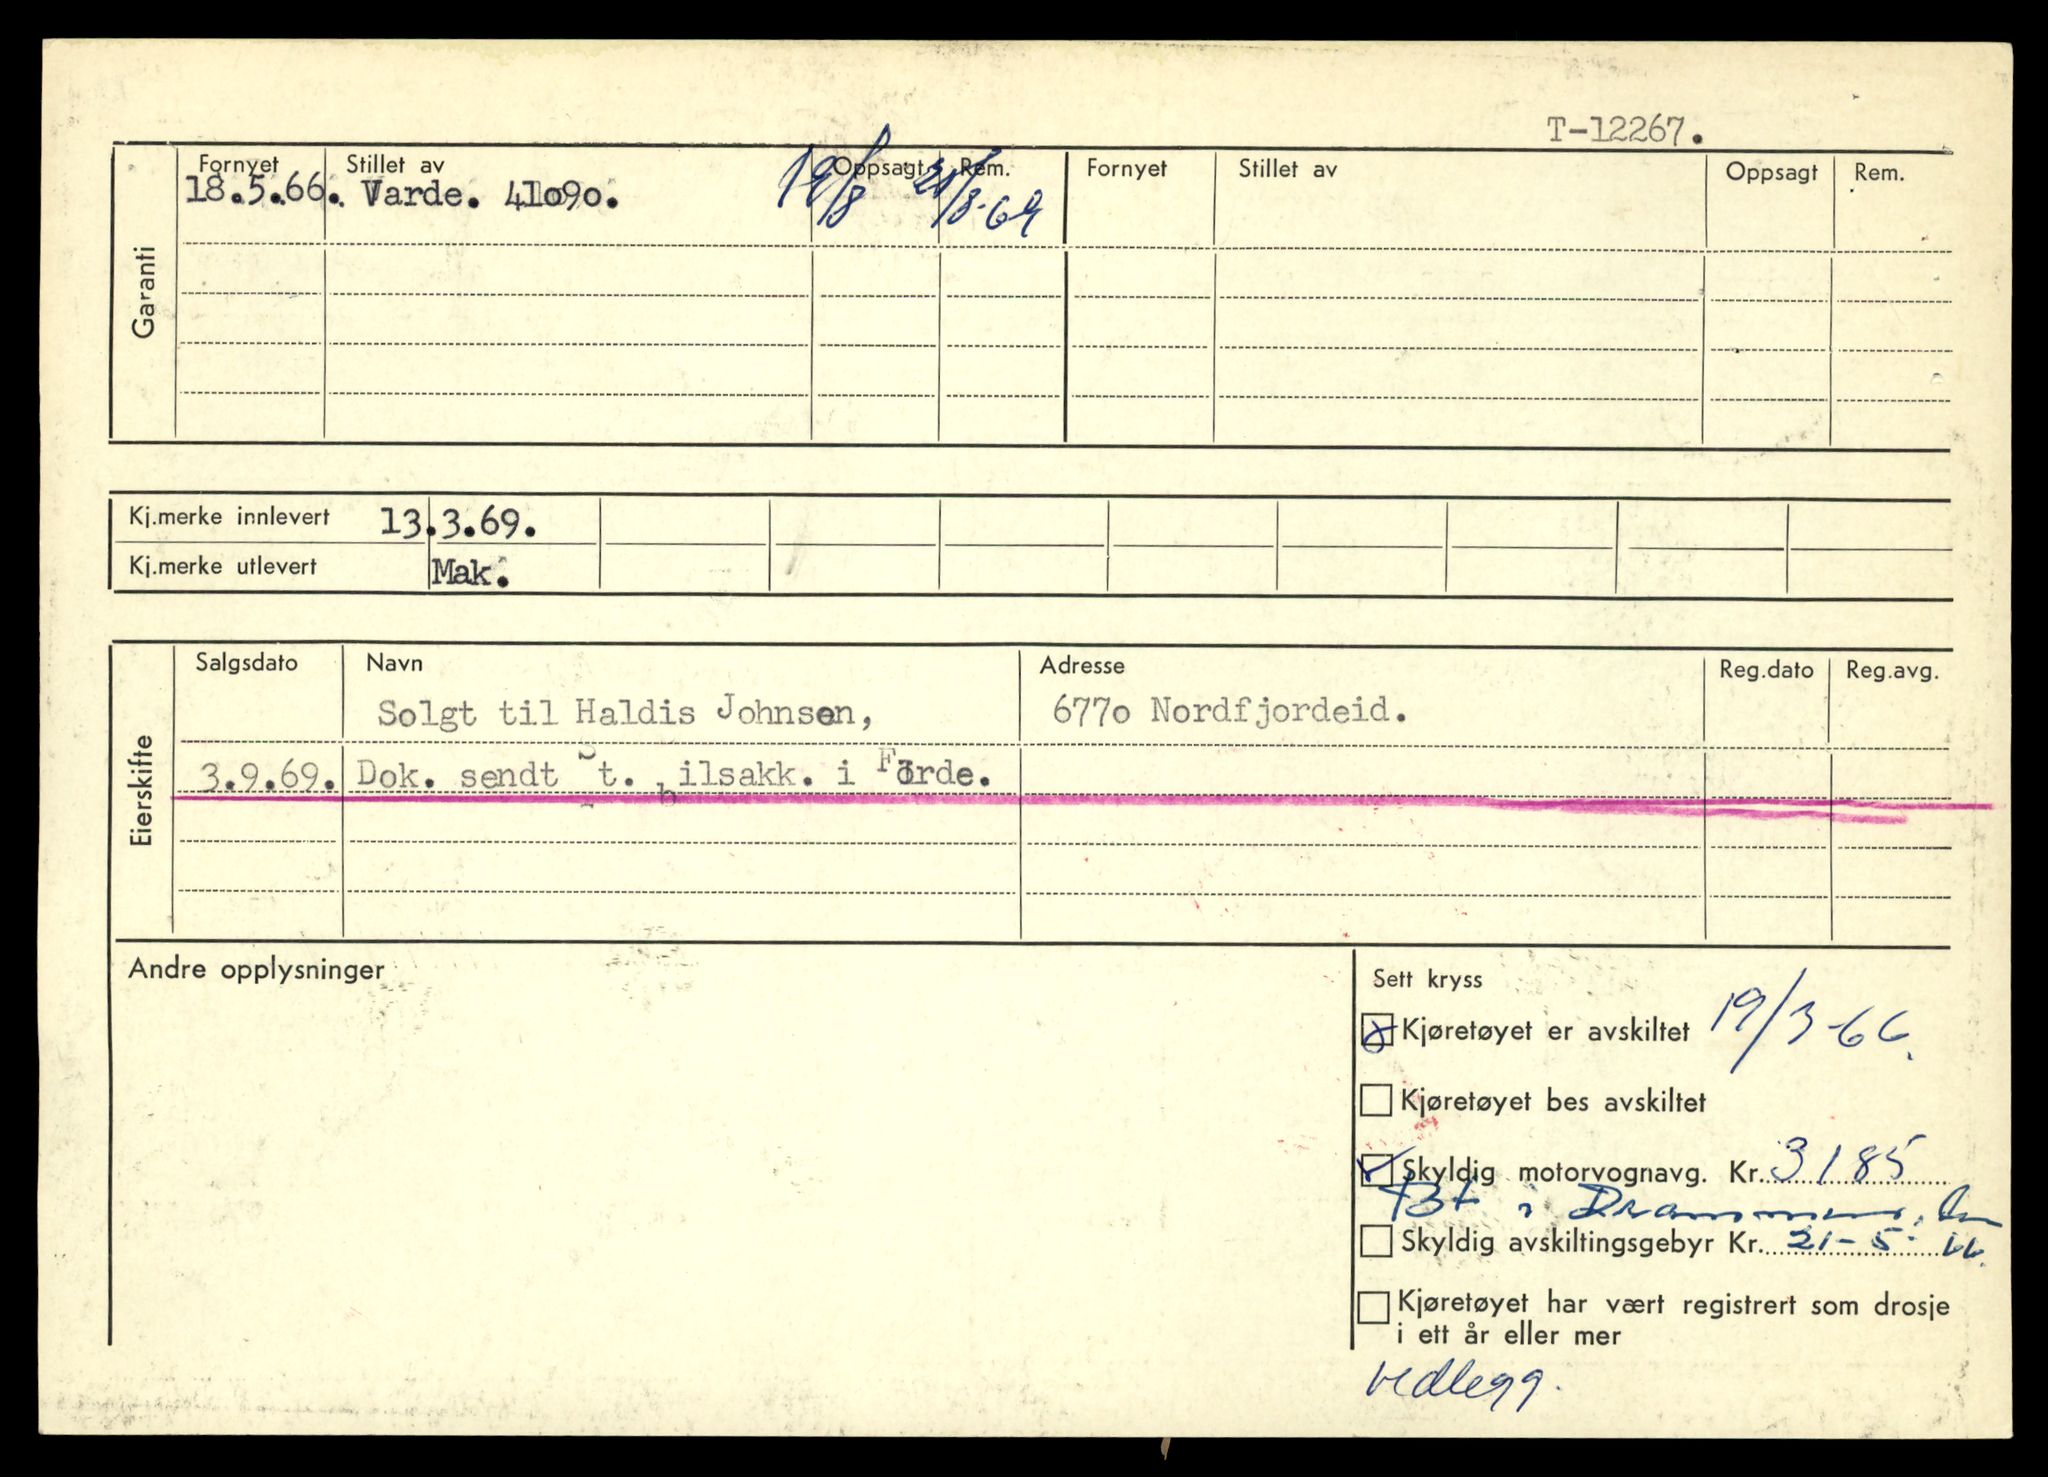 T-12267.
Garanti
Fornyet Stillet av Oppsagt Rem. Fornyet Stillet av Oppsagt Rem.
18.5.66. Varde. 41090. 19/8 21/8-69
Kj.merke innlevert 13.3.69.
Kj.merke utlevert Mak.
Eierskifte
Salgsdato Navn Adresse Reg.dato Reg.avg.
Solgt til Haldis Johnsen, 6770 Nordfjordeid.
3.9.69. Dok. sendt St. bilsakk. i Førde.
Andre opplysninger
Sett kryss
Kjøretøyet er avskiltet 19/3-66.
Kjøretøyet bes avskiltet
Skyldig motorvognavg. Kr. 3185
Bt i Drammen, den
Skyldig avskiltingsgebyr Kr. 21-5-66.
Kjøretøyet har vært registrert som drosje
i ett år eller mer
vedlegg.